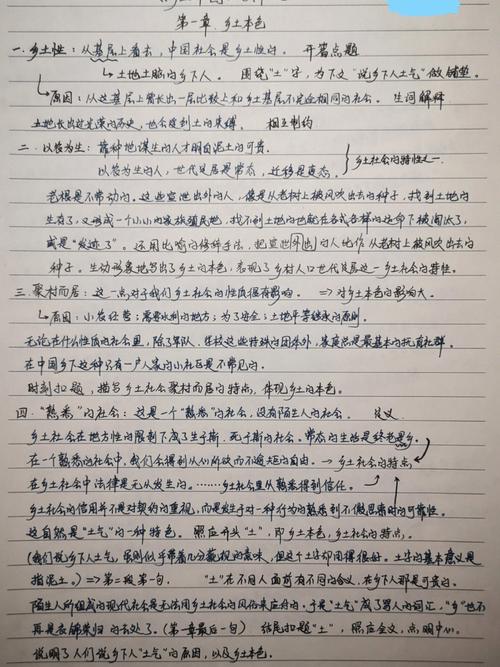 第一章 乡土本色
一.乡土性：从基层上看去，中国社会是乡土性的。 开篇点题
↳土地土脑的乡下人。 围绕“土”字，为下文“说乡下人土气”做铺垫。
↳原因：从这基层上曾长出一层比较上和乡土基层不完全相同的社会。 生词解释
土地长出过光荣的历史，也会受到土的束缚。 相互制约
二.以农为生：靠种地谋生的人才明白泥土的可贵。
以农为生的人，世代定居是常态，迁移是变态。 乡土社会的特性之一
老根是不带动的。这些宣泄出外的人，像是从老树上被风吹出去的种子，找到土地的
生存了，又形成一个小小的家族殖民地，找不到土地的也就在各式各样的运命下被淘汰了，
或是“发迹了”。 运用比喻的修辞手法，把宣泄外出的人比作从老树上被风吹出去的
种子，生动形象地写出了乡土的本色，表现了乡村人口世代定居这一乡土社会的特性。
三.聚村而居：这一点对于我们乡土社会的性质很有影响。 ⇒对乡土本色的影响大。
↳原因：小农经营；需要水利的地方；为了安全；土地平等继承的原则。
无论在什么性质的社会里，除了军队、学校这些特殊的团体外，家庭总是最基本的抚育社群。
在中国乡下这种只有一户人家的小社区是不常见的。
时刻扣题，描写乡土社会聚村而居的特点，体现乡土的本色。
四.“熟悉”的社会：这是一个“熟悉”的社会，没有陌生人的社会。 定义
乡土社会在地方性的限制下成了生于斯、死于斯的社会。常态的生活是终老是乡。
在一个熟悉的社会中，我们会得到从心所欲而不逾规矩的自由。→乡土社会的特点
在乡土社会中法律是无从发生的。……乡土社会里从熟悉得到信任。
乡土社会的信用并不是对契约的重视，而是发生于对一种行为的熟悉到不假思索时的可靠性。
这自然是“土气”的一种特色。 照应开头“土”，即乡土本色，乡土社会的特点。
(我们说乡下人土气，虽则似乎带着几分藐视的意味，但这个土字却用得很好。土字的基本意义是
指泥土。)⇒第二段第一句。 “土”在不同人面前有不同的含义，在乡下人那是可贵的。
陌生人所组成的现代社会是无法用乡土社会的风俗来应付的。于是“土气”成了骂人的词汇，“乡”也不
再是衣锦荣归的去处了。(第一章最后一句) 结尾扣题“土”，照应全文，点明中心。
说明了人们说乡下人“土气”的原因，以及乡土本色。